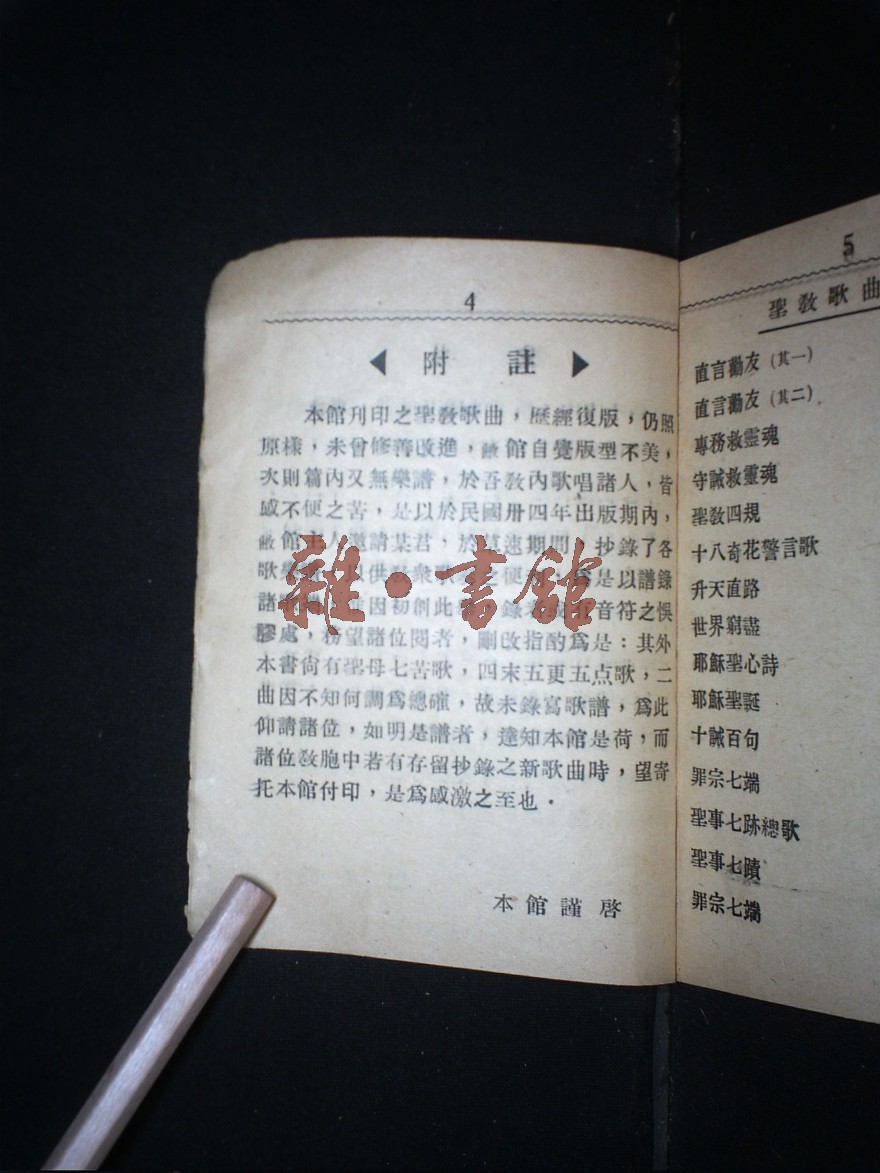 4
◀ 附 註 ▶
本館刊印之聖敎歌曲，歷經復版，仍照
原樣，未曾修善改進，敝館自覺版型不美，
次則篇內又無樂譜，於吾敎內歌唱諸人，皆
感不便之苦，是以於民國卅四年出版期內，
敝館主人邀請某君，於莫速期間，抄錄了各
歌 以供敎衆歌 之便 是以譜錄
諸 因初創此 錄 有音符之悮
謬處，務望諸位閱者，刪改指酌爲是：其外
本書尙有聖母七苦歌，四末五更五点歌，二
曲因不知何調爲總確，故未錄寫歌譜，爲此
仰請諸位，如明是譜者，達知本館是荷，而
諸位敎胞中若有存留抄錄之新歌曲時，望寄
托本館付印，是爲感激之至也．
本館謹啓
5
聖敎歌曲
直言勸友（其一）
直言勸友（其二）
專務救靈魂
守誡救靈魂
聖敎四規
十八奇花警言歌
升天直路
世界窮盡
耶穌聖心詩
耶穌聖誕
十誡百句
罪宗七端
聖事七跡總歌
聖事七蹟
罪宗七端
雜・書館